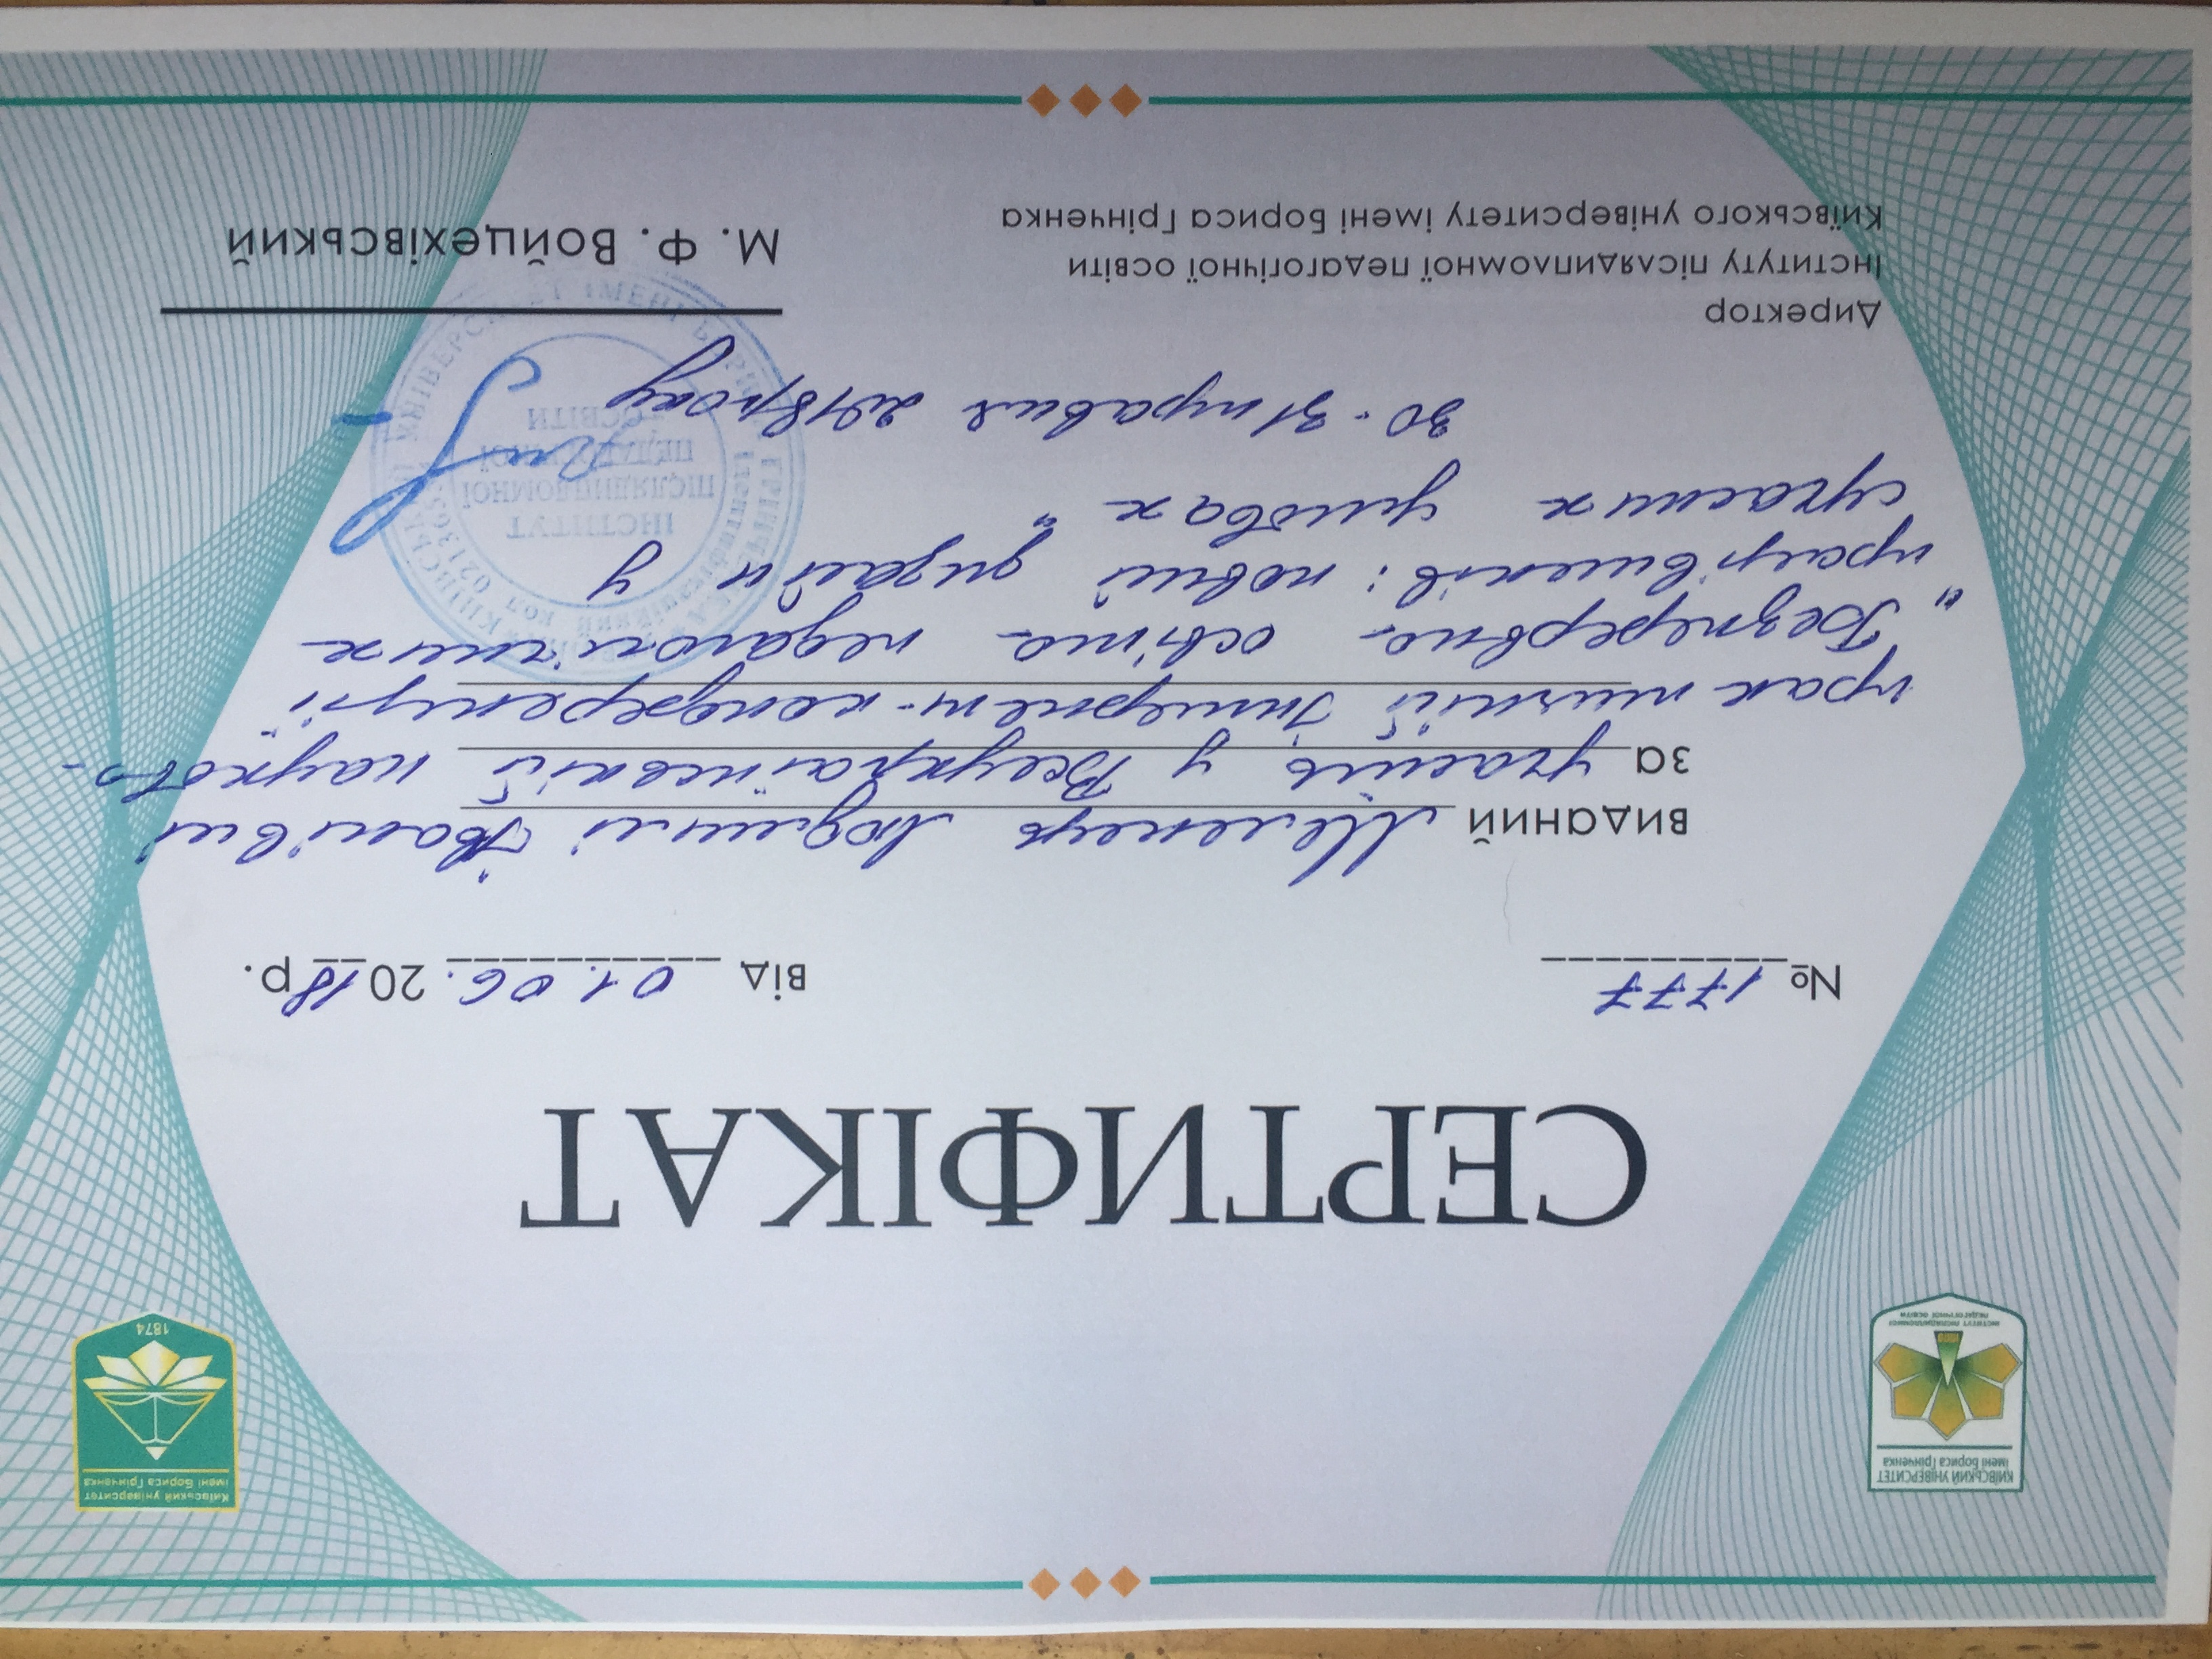 КИЇВСЬКИЙ УНІВЕРСИТЕТ
імені Бориса Грінченка
ІНСТИТУТ ПІСЛЯДИПЛОМНОЇ
ПЕДАГОГІЧНОЇ ОСВІТИ
Київський університет
імені Бориса Грінченка
1874
СЕРТИФІКАТ
№ 1777 від 01.06. 2018 р.
виданий Меленець Людмилі Іванівні
за участь у Всеукраїнській науково-
практичній Інтернет-конференції
"Безперервна освіта педагогічних
працівників: новий дизайн у
сучасних умовах"
30-31 травня 2018 року
Директор
Інституту післядипломної педагогічної освіти
Київського університету імені Бориса Грінченка
М. Ф. Войцехівський
ІНСТИТУТ
ПІСЛЯДИПЛОМНОЇ
ПЕДАГОГІЧНОЇ
ОСВІТИ